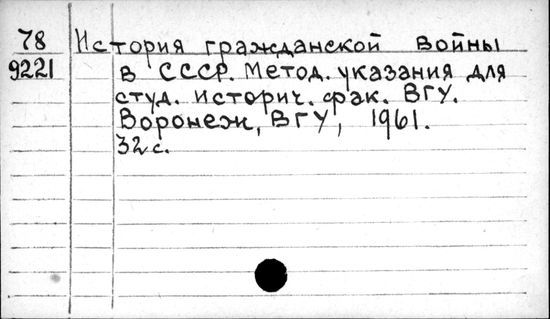 78 История гражданской войны
9221 в СССР. Метод. указания для
студ. историч. фак. ВГУ.
Воронеж, ВГУ, 1961.
32 с.